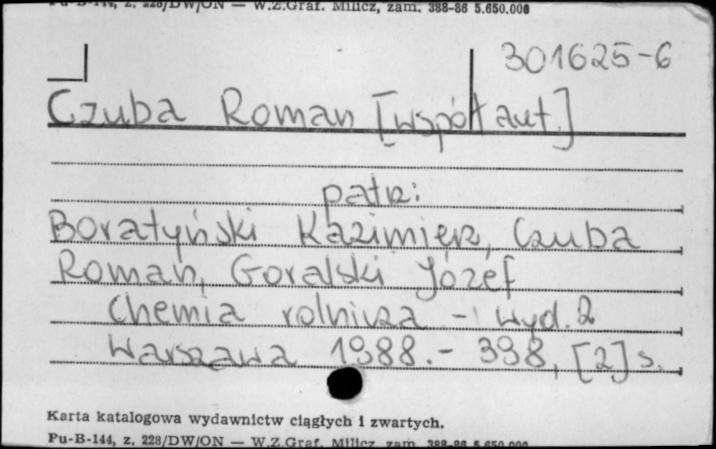 Pu-B-144, z. 228/DW/ON — W.Z.Graf. Milicz, zam. 388-86 5.650.000
301625-6
Czuba Roman [współaut.]
patrz:
Boratyński Kazimierz, Czuba
Roman, Goralski Józef
Chemia rolnicza - wyd. 2
Warszawa 1988. - 398, [2] s.
Karta katalogowa wydawnictw ciągłych i zwartych.
Pu-B-144, z. 228/DW/ON — W.Z.Graf. Milicz zam. 388-86 5.650.000